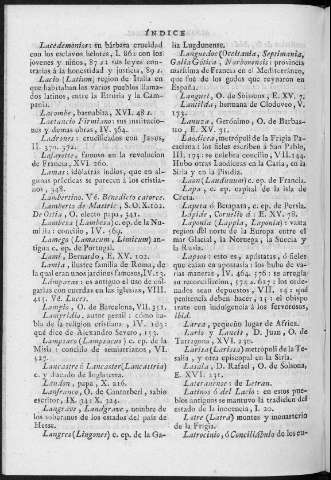 ÍNDICE
Lacedemonios: su bárbara crueldad
con los esclavos helotes, I. 862 con los
jovenes y niños, 87.: sus leyes con-
trarias á la honestidad y justicia, 89.
Lacio (Latium) region de Italia en
que habitaban los varios pueblos llama-
dos latinos, entre la Etruria y la Cam-
pania.
Lacombe, barnabita, XVI. 48
Lactancio Firmiano: sus institucio-
nes y demas obras, IV. 364.
Ladrones: crucificados con Jesus,
II. 370. 372.
Lafayette, famoso en la revolucion
de Francia, XVI. 260.
Lamas: idólatras indios, que en al-
gunas prácticas se parecen á los cristia-
nos, 348.
Lambertino. Vé. Benedicto catorce.
Lamberto de Maestric, S. O. X.
De Ostia, O. electo papa, 341.
Lambesa (Lambesa) c. ep. de la Nu-
midia: concilio, IV. 569.
Lamego (Lamacum, Limicum) an-
tigua c. ep. de Portugal.
Lamí, Bernardo, E. XV. 102.
Lamia, ilustre familia de Roma, de
la qual eran unos jardines famosos, IV. 13.
Lámparas: es antiguo el uso de col-
garlas con cuerdas en las iglesias, VIII.
415. Vé. Luces.
Lampio, O. de Barcelona, VII. 351.
Lampridio, autor penal: cómo ha-
bla de la religion cristiana, IV. 193:
qué dice de Alexandro Severo, 153.
Lampsaco (Lampsacus) c. ep. de la
Misia: concilio de semiarrianos, VI.
127.
Lancastre ó Lancaster (Lancastria)
c. y ducado de Inglaterra.
Landon, papa, X. 216.
Lanfranco, O. de Cantorberi, sabio
escritor, IX. 341 X. 324.
Langrave, Landgrave, nombre de
los soberanos de los estados del pais de
Hesse.
Langres (Lingones) c. ep. de la Ga-
lia Lugdunense.
Languedoc (Occitania, Septimania,
Galia Gótica, Narbonensis): provincia
marítima de Francia en el Mediterraneo,
que fué de los godos que reynaron en
España.
O. de Soissons, E. XV. 7.
hermana de Clodoveo, V.
Lanuza, Gerónimo, O. de Barbas-
tro, E. XV. 31.
Laodicea, metrópoli de la Frigia Pa-
caciana: á los fieles escriben san Pablo,
III. 175: se celebra concilio, VII. 144.
Hubo otras Laodiceas en la Caria, en la
Siria y en la Pisidia.
Laon (Laudunum) c. ep. de Francia.
Lapa, c. ep. capital de la isla de
Creta.
Lapeta ó Betapara, c. ep. de Persia.
Lápide, Cornelio á: E. XV. 78.
Laponia (Lappia, Laponia): vasta
region del norte de la Europa entre el
mar Glacial, la Noruega, la Suecia y
la Rusia.
Lapsos: esto es, apóstatas, ó fieles
que caian en apostasía: los hubo de va-
rias maneras, IV. 464. 576: se arregla-
ron las reconciliaciones, : los orde-
nados sean depuestos, VII. 15: qué
penitencia deben hacer, 15: el obispo
trate con indulgencia á los fervorosos,
ibid.
Larea, pequeño lugar de Africa.
Laris y Lancis, D. Juan, O. de
Tarragona, XVI. 230.
Larisa (Larissa) metrópoli de la Te-
salia, y otra episcopal en la Siria.
Lasala, D. Rafael, O. de Solsona,
E. XVI. 231.
Lateranense: de Letran.
Latinos ó del Lacio: en estos pue-
blos antiguos se mantuvo la tradicion del
estado de la inocencia, I. 20.
Latre (Latra) montes y monasterio
de la Frigia.
Latrocinio, ó Conciliábulo de los eu-